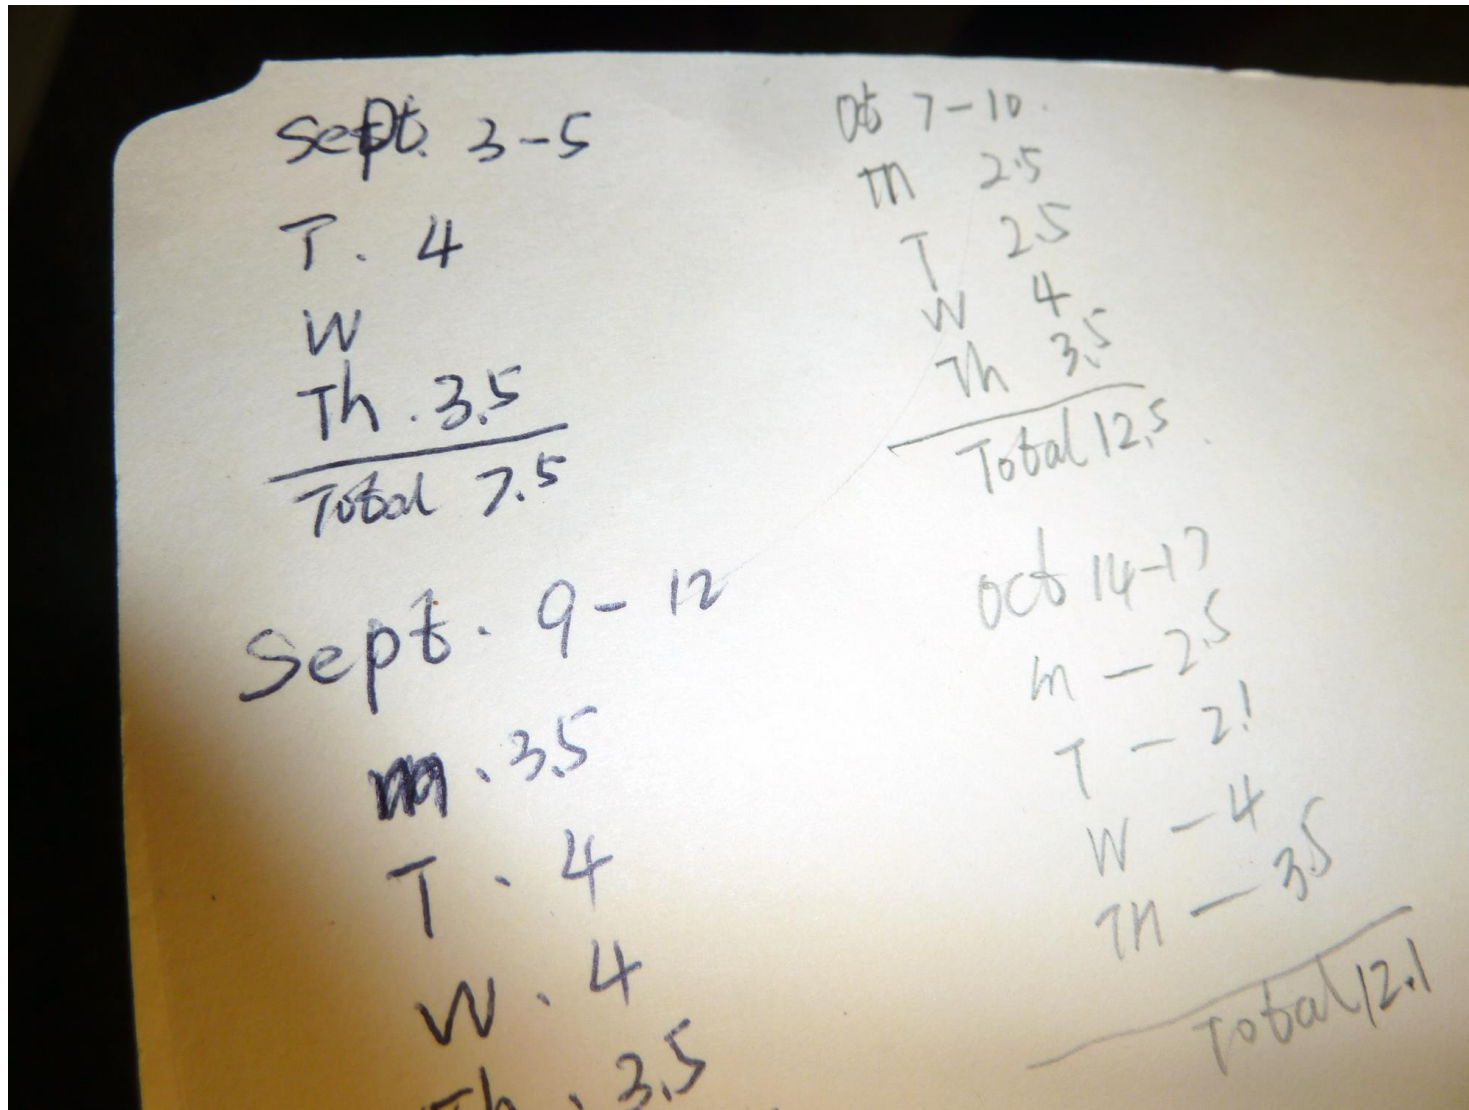 Sept. 3-5
T. 4
W
Th. 3.5
Total 7.5
Sept. 9-12
m. 3.5
T. 4
W. 4
Th. 3.5
Oct 7-10.
m 2.5
T 2.5
W 4
Th 3.5
Total 12.5
Oct 14-17
m - 2.5
T - 2.1
W - 4
Th - 3.5
Total 12.1